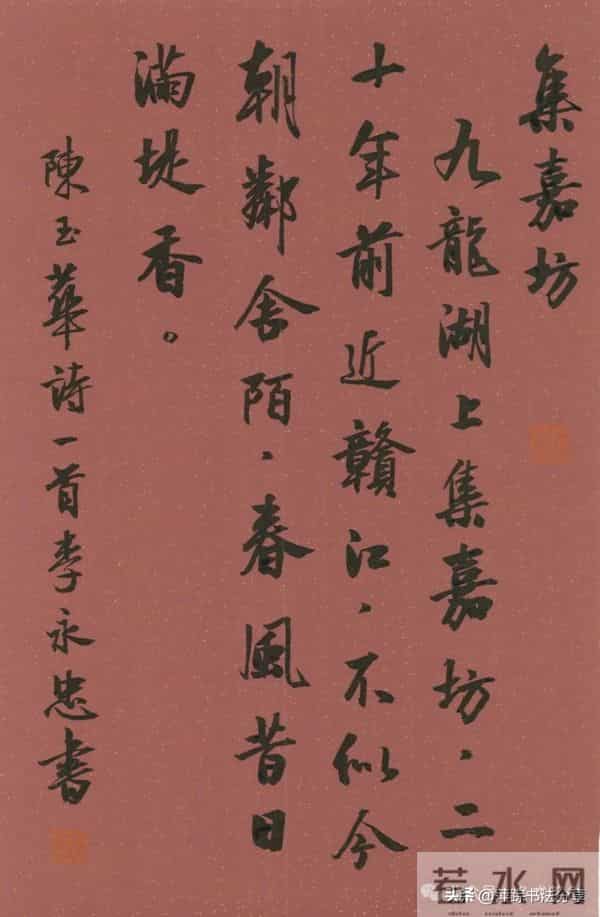 集嘉坊
九龍湖上集嘉坊、二
十年前近贛江、不似今
朝鄰舍陌、春風昔日
滿堤香。
陳玉華詩一首李永忠書
若水网